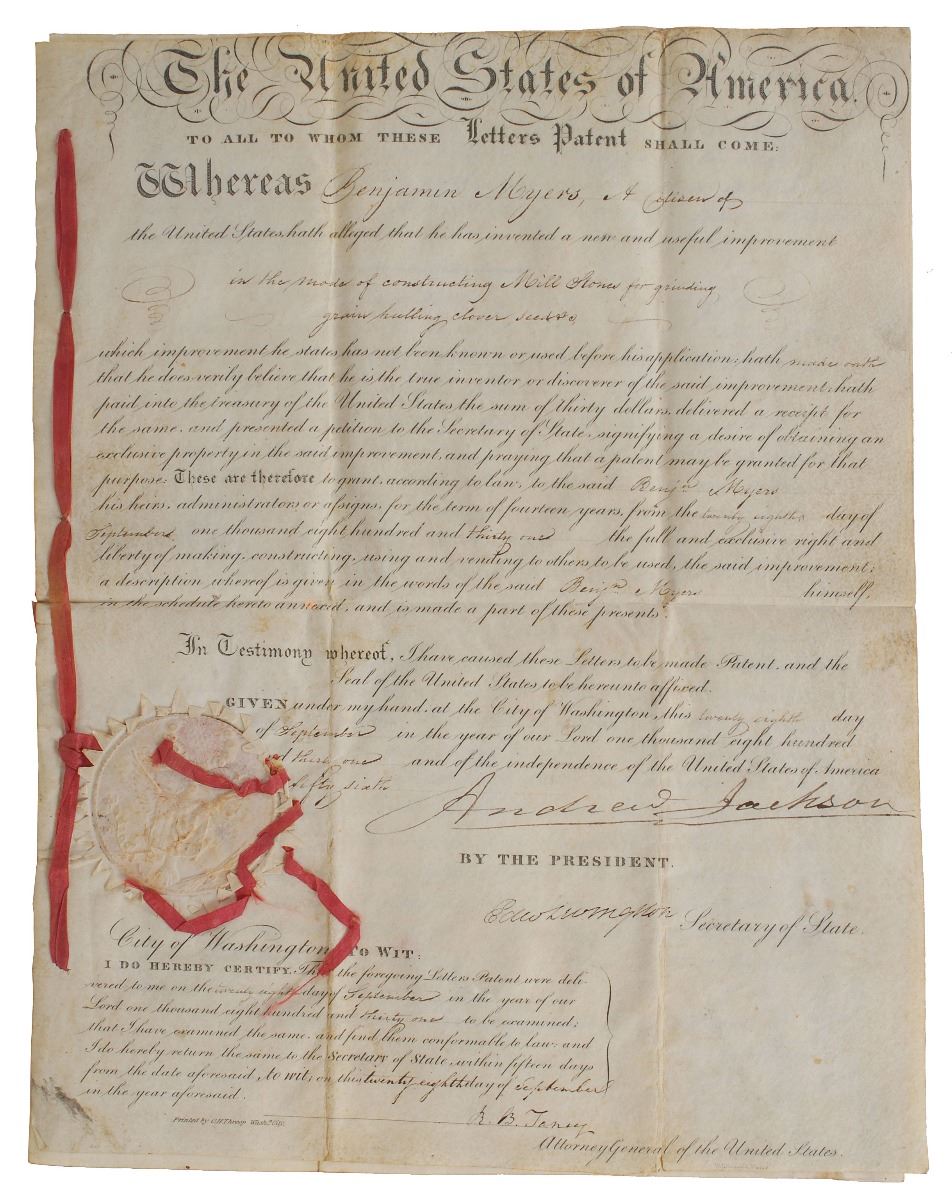 The United States of America.
TO ALL TO WHOM THESE Letters Patent SHALL COME:
Whereas Benjamin Myers, A citizen of
the United States, hath alleged that he has invented a new and useful improvement
in the mode of constructing Mill Stones for grinding
grain hulling clover seed &c
which improvement he states has not been known or used before his application; hath made oath
that he does verily believe that he is the true inventor or discoverer of the said improvement; hath
paid into the treasury of the United States the sum of thirty dollars, delivered a receipt for
the same, and presented a petition to the Secretary of State, signifying a desire of obtaining an
exclusive property in the said improvement, and praying that a patent may be granted for that
purpose: These are therefore to grant, according to law, to the said Benjn Myers
his heirs, administrators or assigns, for the term of fourteen years, from the twenty eighth day of
September one thousand eight hundred and thirty one the full and exclusive right and
liberty of making, constructing, using and vending to others to be used, the said improvement;
a description whereof is given in the words of the said Benjn Myers himself,
in the schedule hereto annexed, and is made a part of these presents.
In Testimony whereof, I have caused these Letters to be made Patent, and the
Seal of the United States to be hereunto affixed.
GIVEN under my hand, at the City of Washington this twenty eighth day
of September in the year of our Lord one thousand eight hundred
and thirty one and of the independence of the United States of America
fifty sixth
Andrew Jackson
BY THE PRESIDENT.
Edw Livingston Secretary of State.
City of Washington, TO WIT:
I DO HEREBY CERTIFY, That the foregoing Letters Patent were deli-
vered to me on the twenty eighth day of September in the year of our
Lord one thousand eight hundred and thirty one to be examined;
that I have examined the same, and find them conformable to law: and
I do hereby return the same to the Secretary of State, within fifteen days
from the date aforesaid, to wit; on this twenty eighth day of September
in the year aforesaid.
R. B. Taney
Printed by Throop Wash.
Attorney General of the United States.